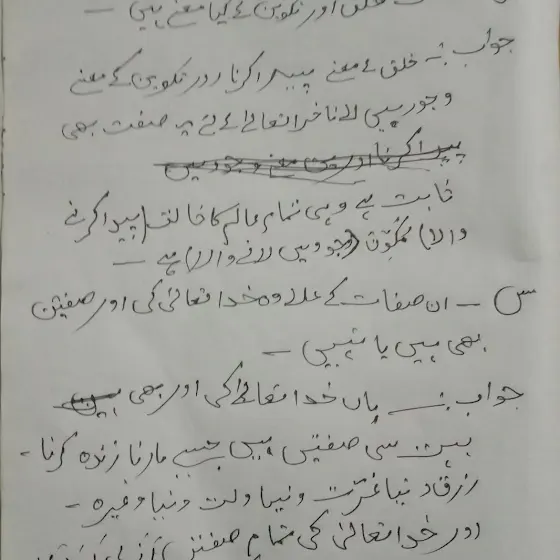 خلق اور تکوین کے کیا معنے ہیں ۔
جواب :۔ خلق کے معنے پیدا کرنا اور تکوین کے معنے
وجود میں لانا خدا تعالےٰ کے لئے یہ صفت بھی
پیدا کرنا اور معنے وجود میں
ثابت ہے وہی تمام عالم کا خالق (پیدا کرنے
والا) مُکَوِّن (وجود میں لانے والا) ہے ۔
س ۔ ان صفات کے علاوہ خدا تعالیٰ کی اور صفتیں
بھی ہیں یا نہیں ۔
جواب :۔ ہاں خدا تعالےٰ کی اور بھی ہیں
بہت سی صفتیں ہیں جیسے مارنا زندہ کرنا ۔
رزق دینا عزّت دینا ذلت دینا وغیرہ ۔
اور خدا تعالیٰ کی تمام صفتیں